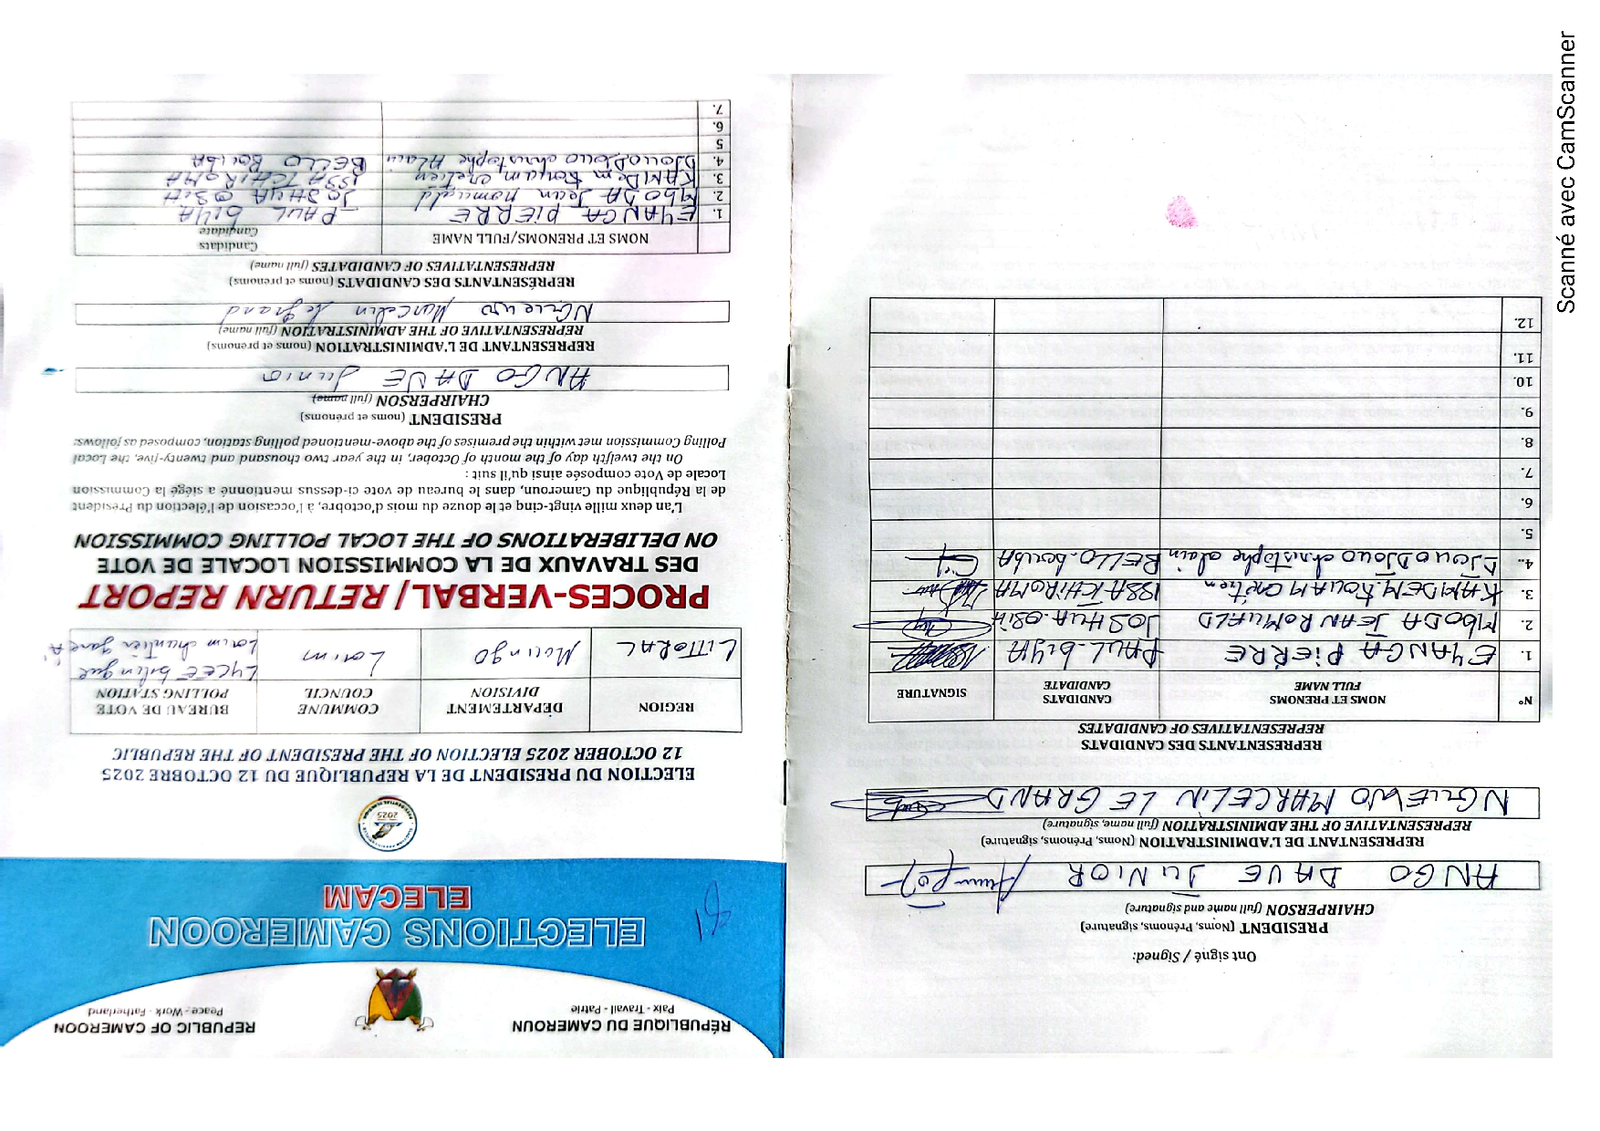 RÉPUBLIQUE DU CAMEROUN
Paix - Travail - Patrie
REPUBLIC OF CAMEROON
Peace - Work - Fatherland
ELECTIONS CAMEROON
ELECAM
ELECTION DU PRESIDENT DE LA REPUBLIQUE DU 12 OCTOBRE 2025
12 OCTOBER 2025 ELECTION OF THE PRESIDENT OF THE REPUBLIC
REGION
DÉPARTEMENT
DIVISION
COMMUNE
COUNCIL
BUREAU DE VOTE
POLLING STATION
LITTORAL
Moungo
Loum
LYCEE bilingue
Loum chantier gare A
PROCES-VERBAL/ RETURN REPORT
DES TRAVAUX DE LA COMMISSION LOCALE DE VOTE
ON DELIBERATIONS OF THE LOCAL POLLING COMMISSION
L'an deux mille vingt-cinq et le douze du mois d'octobre, à l'occasion de l'élection du Président
de la République du Cameroun, dans le bureau de vote ci-dessus mentionné a siégé la Commission
Locale de Vote composée ainsi qu'il suit :
On the twelfth day of the month of October, in the year two thousand and twenty-five, the Local
Polling Commission met within the premises of the above-mentioned polling station, composed as follows:
PRESIDENT (noms et prénoms)
CHAIRPERSON (full name)
ANGO DAVE Junior
REPRÉSENTANT DE L'ADMINISTRATION (noms et prenoms)
REPRESENTATIVE OF THE ADMINISTRATION (full name)
NGUEWO Marcelin Legrand
REPRÉSENTANTS DES CANDIDATS (noms et prenoms)
REPRESENTATIVES OF CANDIDATES (full name)
NOMS ET PRENOMS/FULL NAME
Candidats
Candidate
1. EYANGA PIERRE PAUL BIYA
2. MBODA Jean Romuald JOSHUA OSIH
3. KAMDEM Kouam cretien ISSA TCHIROMA
4. DJOUODJOUO christophe Alain BELLO BOUBA
5
6.
7.
Ont signé / Signed:
PRESIDENT (Noms, Prénoms, signature)
CHAIRPERSON (full name and signature)
ANGO DAVE JUNIOR
REPRESENTANT DE L'ADMINISTRATION (Noms, Prénoms, signature)
REPRESENTATIVE OF THE ADMINISTRATION (full name, signature)
NGUEWO MARCELIN LE GRAND
REPRESENTANTS DES CANDIDATS
REPRESENTATIVES OF CANDIDATES
N°
NOMS ET PRENOMS
FULL NAME
CANDIDATS
CANDIDATE
SIGNATURE
1. EYANGA PIERRE PAUL BIYA
2. MBODA JEAN ROMUALD JOSHUA OSIH
3. KAMDEM KOUAM ISSA TCHIROMA
4. DJOUODJOUO christophe alain BELLO BOUBA
5.
6.
7.
8.
9.
10.
11.
12.
Scanné avec CamScanner